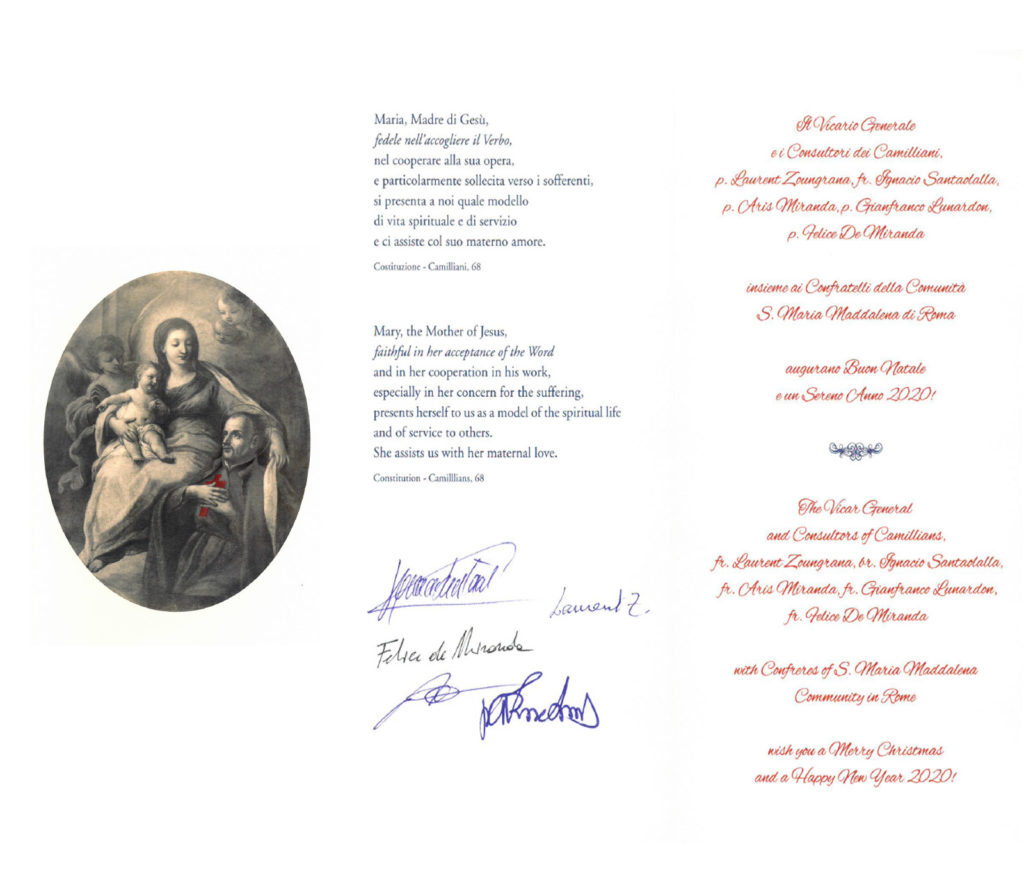 Maria, Madre di Gesù,
fedele nell'accogliere il Verbo,
nel cooperare alla sua opera,
e particolarmente sollecita verso i sofferenti,
si presenta a noi quale modello
di vita spirituale e di servizio
e ci assiste col suo materno amore.
Costituzione - Camilliani, 68
Mary, the Mother of Jesus,
faithful in her acceptance of the Word
and in her cooperation in his work,
especially in her concern for the suffering,
presents herself to us as a model of the spiritual life
and of service to others.
She assists us with her maternal love.
Constitution - Camilllians, 68
Laurent Z.
Felice de Miranda
Il Vicario Generale
e i Consultori dei Camilliani,
p. Laurent Zoungrana, fr. Ignacio Santaolalla,
p. Aris Miranda, p. Gianfranco Lunardon,
p. Felice De Miranda
insieme ai Confratelli della Comunità
S. Maria Maddalena di Roma
augurano Buon Natale
e un Sereno Anno 2020!
The Vicar General
and Consultors of Camillians,
fr. Laurent Zoungrana, br. Ignacio Santaolalla,
fr. Aris Miranda, fr. Gianfranco Lunardon,
fr. Felice De Miranda
with Confreres of S. Maria Maddalena
Community in Rome
wish you a Merry Christmas
and a Happy New Year 2020!